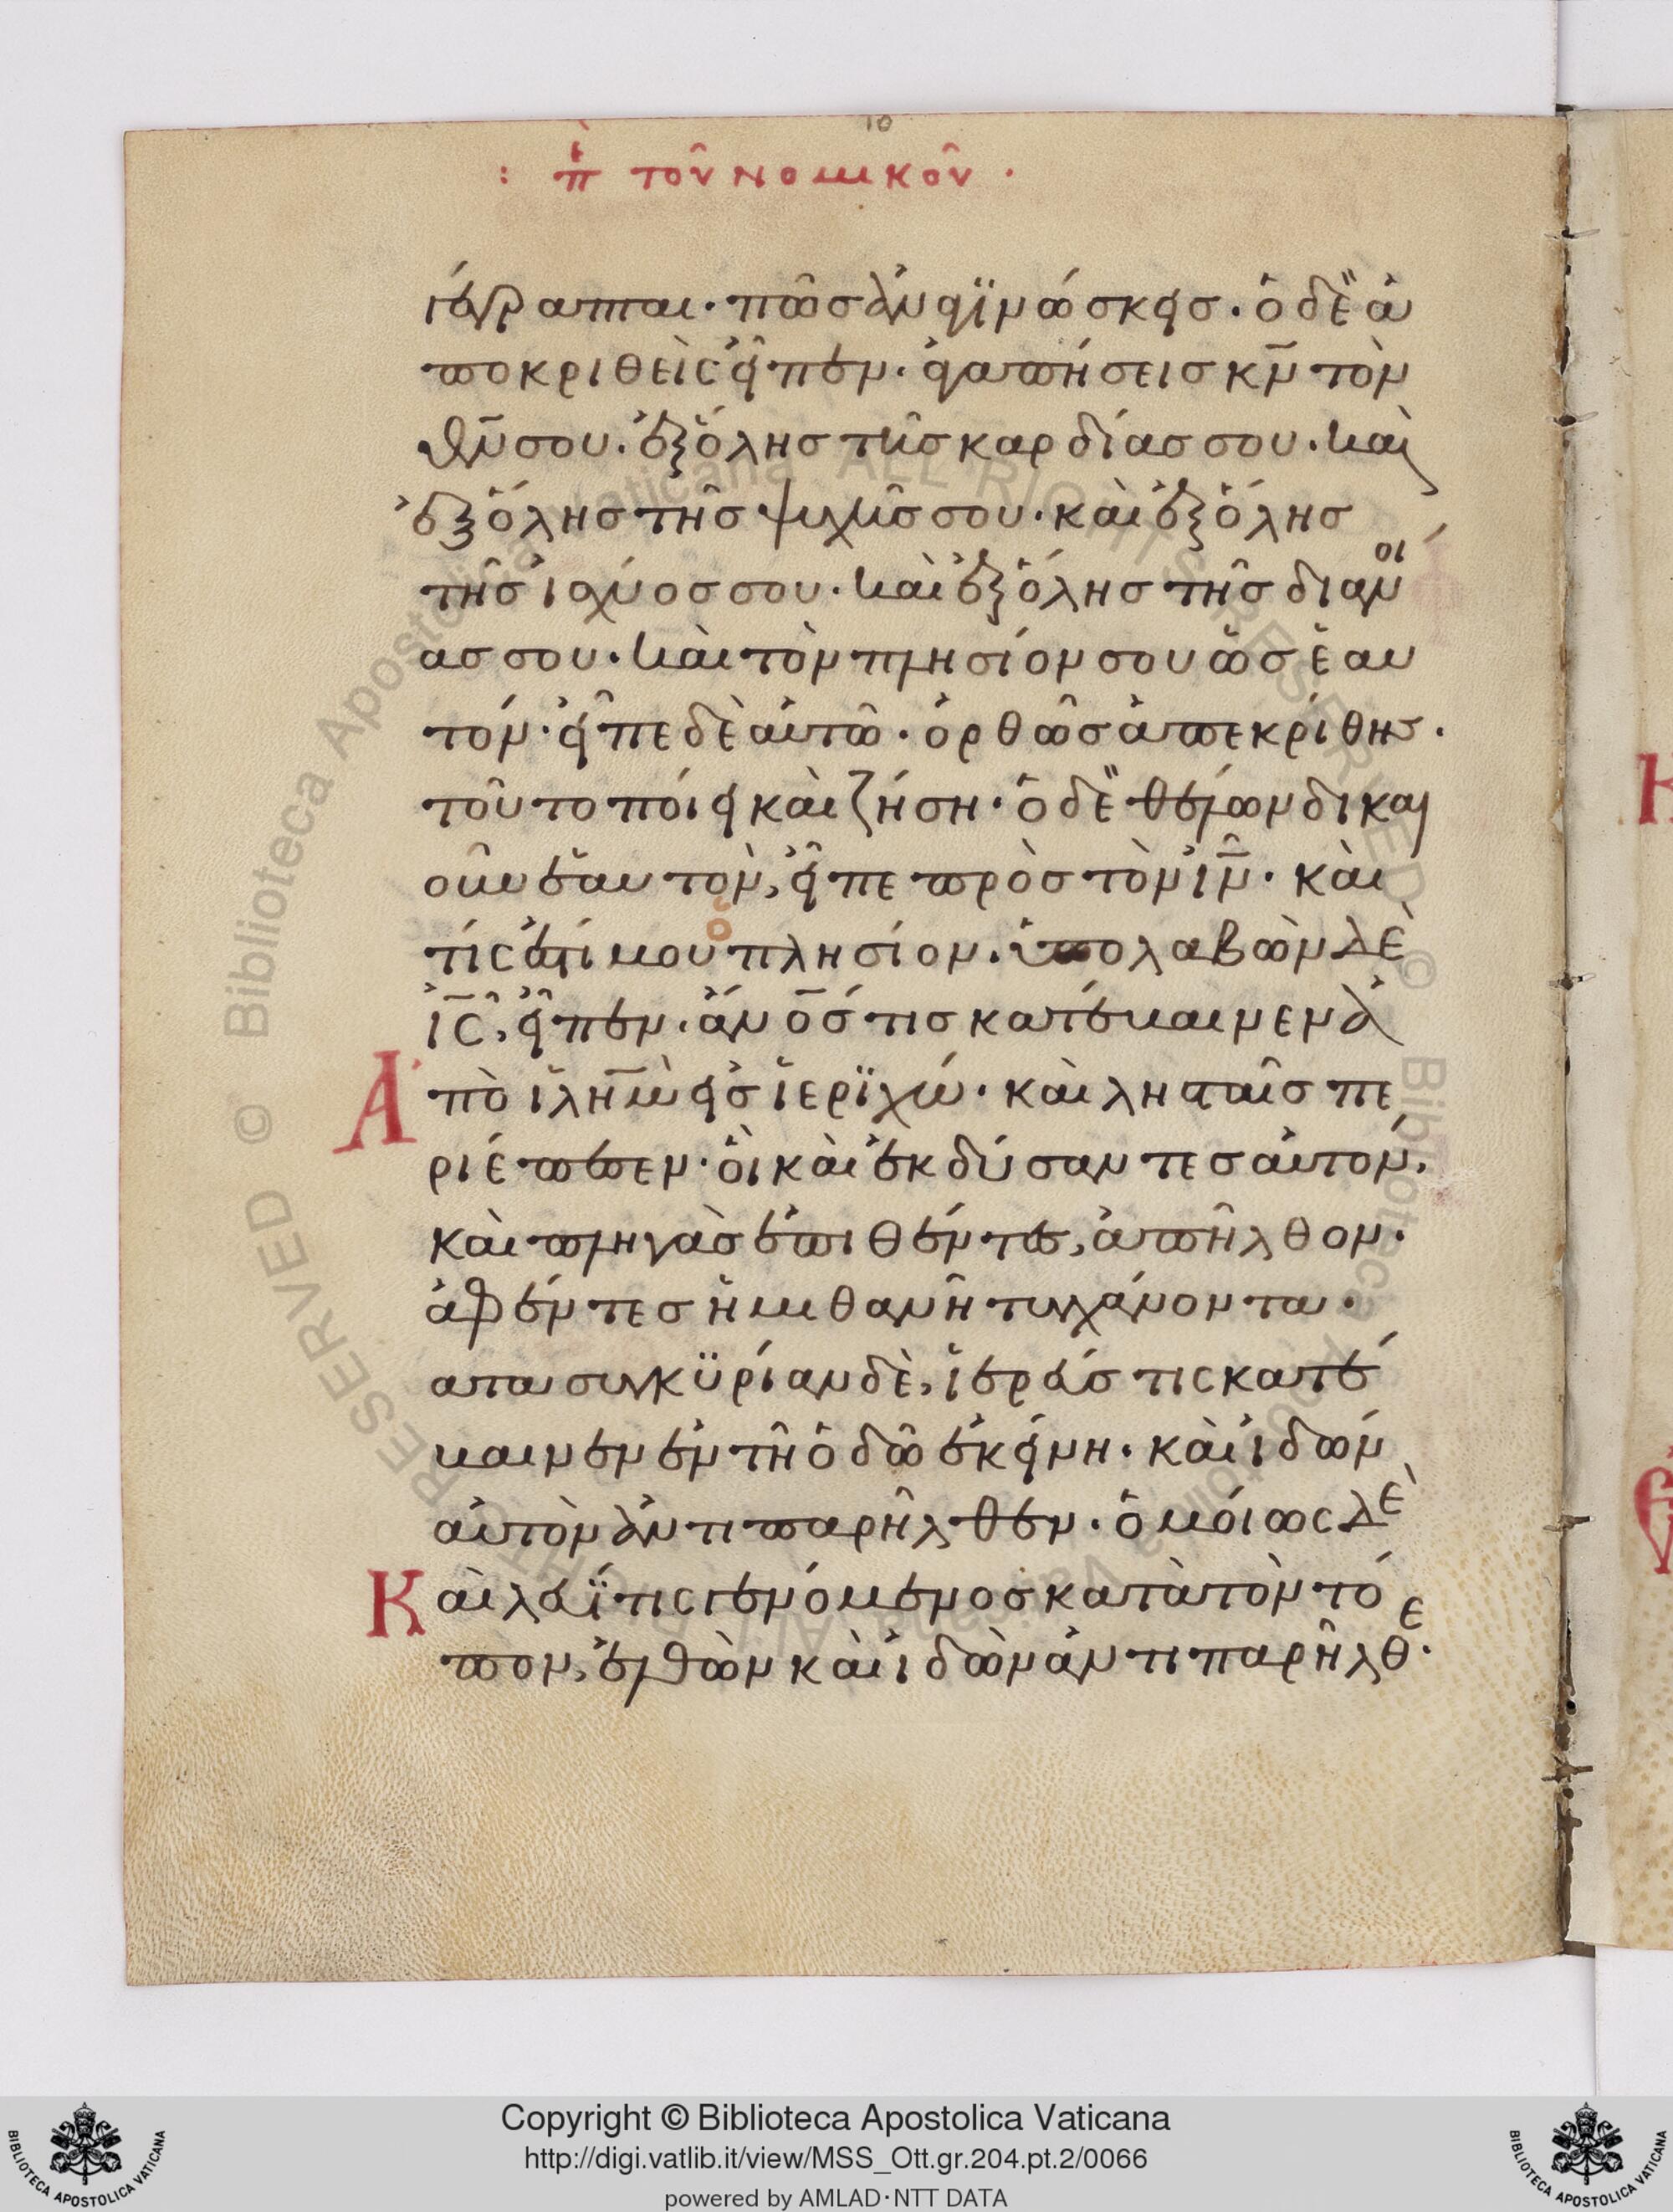 10
: π̇ τοῦ νομικοῦ ·
γέγραπται · πῶσ ἀναγϊνώσκεισ · ὁ δὲ ἀ
ποκριθεὶς εἶπεν · ἀγαπήσεισ κ̅ν̅ τὸν
θ̅ν̅ σου · ἐξ ὅλησ τῆσ καρδίασ σου · καὶ
ἐξ ὅλησ τῆσ ψυχῆσ σου · καὶ ἐξ ὅλησ
τῆσ ἰσχύοσ σου · καὶ ἐξ ὅλησ τῆσ διανοί
ασ σου · καὶ τὸν πλησίον σου ὡσ ἑαυ
τόν · εἶπε δὲ αὐτῶ · ὀρθῶσ ἀπεκρίθησ ·
τοῦτο ποίει καὶ ζήση · ὁ δὲ θέλων δικαι
οῦν ἑαυτὸν, εἶπε πρὸσ τὸν ι̅ν̅ · καὶ
τίς ἐστί μου πλησίον · ὑπολαβὼν δὲ
ὁ
ι̅ς̅, εἶπεν · ἄν̅ο̅σ τισ κατέβαινεν ἀ
πὸ ἰλη̅μ̅ εἰσ ἱερϊχώ · καὶ λησταῖσ πε
ριέπεσεν · οἳ καὶ ἐκδύσαντεσ αὐτὸν,
καὶ πληγὰσ ἐπιθέντεσ, ἀπῆλθον ·
ἀφέντεσ ἡμιθανῆ τυγχάνοντα ·
κατα συγκϋρίαν δὲ, ἱερεύσ τις κατέ
βαινεν ἐν τῆ ὁδῶ ἐκείνη · καὶ ἰδὼν
αὐτὸν ἀντιπαρῆλθεν · ὁμοίως δὲ
Καὶ λευΐτις γενόμενοσ κατὰ τὸν τό
πον, ἐλθὼν καὶ ἰδὼν ἀντιπαρῆλθε ·
Copyright © Biblioteca Apostolica Vaticana
http://digi.vatlib.it/view/MSS_Ott.gr.204.pt.2/0066
powered by AMLAD·NTT DATA
BIBLIOTECA APOSTOLICA VATICANA
BIBLIOTECA APOSTOLICA VATICANA